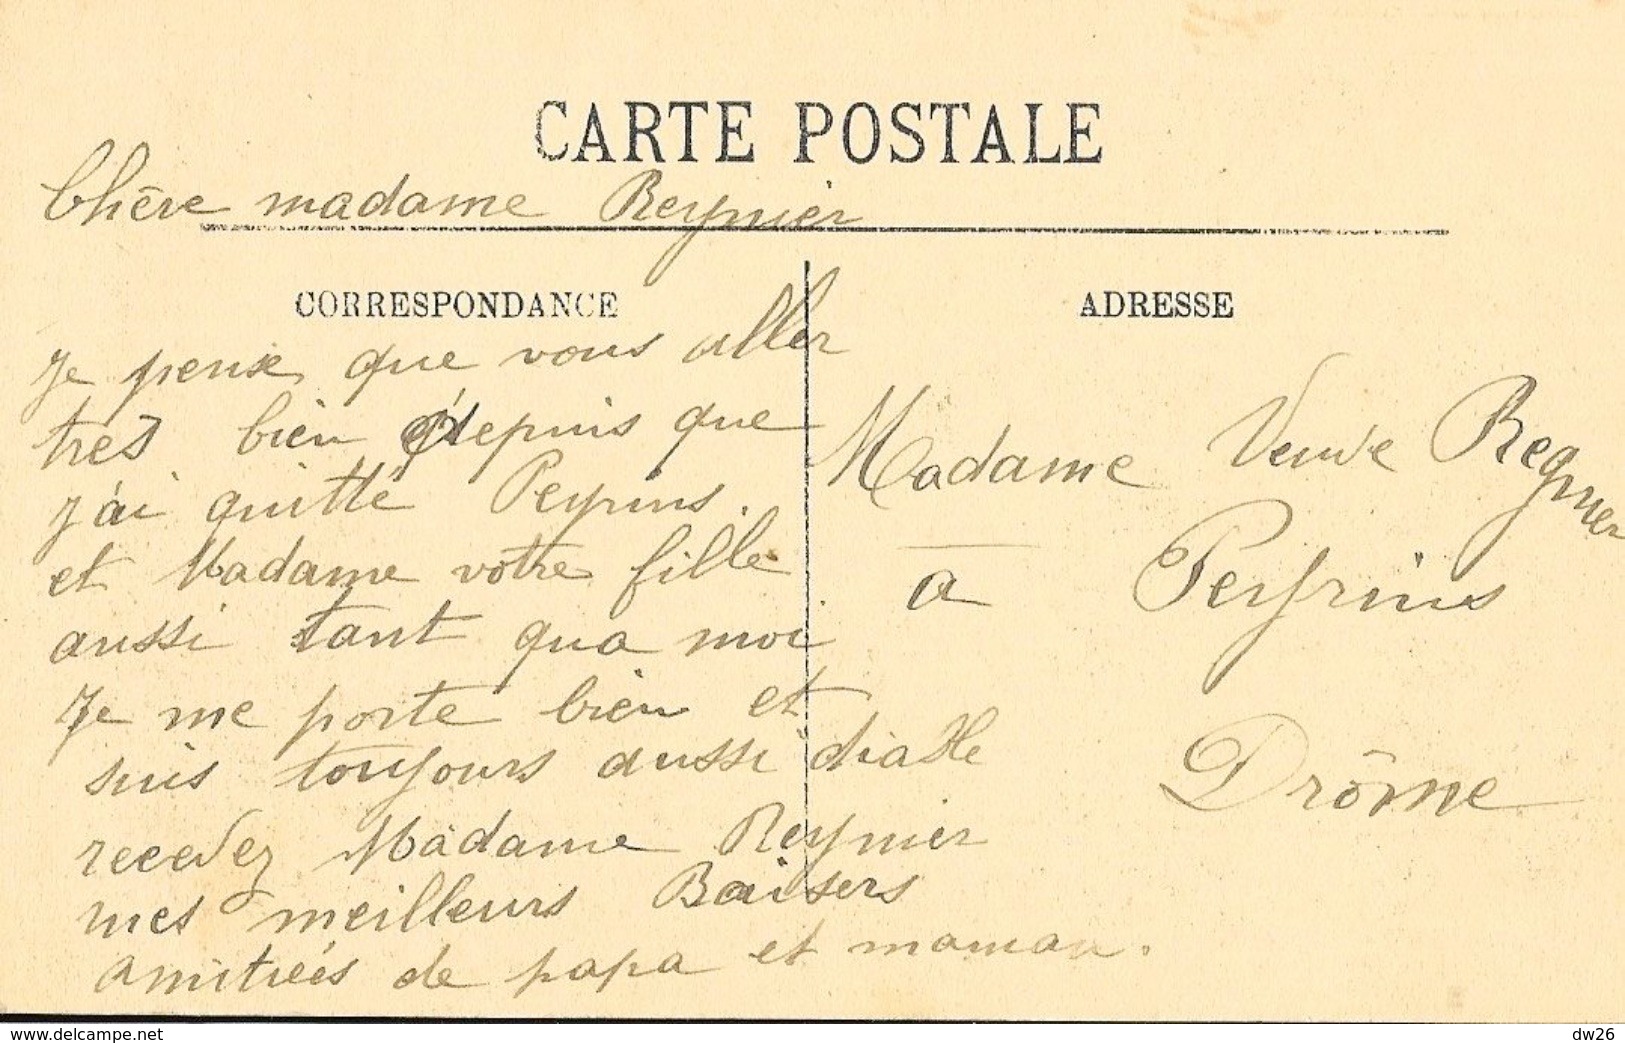 CARTE POSTALE
Chère madame Reynier
CORRESPONDANCE
Je pense que vous aller
tres bien depuis que
j'ai quitté Peyrins.
et Madame votre fille
aussi tant qua moi
Je me porte bien et
suis toujours aussi diable
recevez Madame Reynier
mes meilleurs Baisers
amitiées de papa et maman.
ADRESSE
Madame Veuve Regnier
a Peyrins
Drôme
www.delcampe.net
dw26